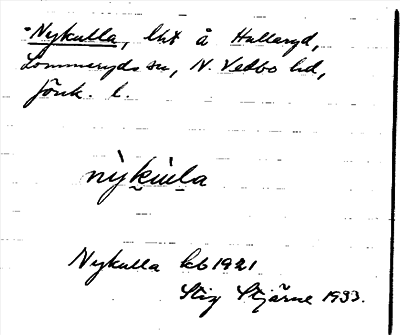 Nykulla, lht å Hullaryd,
Lommaryds sn, N. Vedbo hd,
Jönk. l.
nỳkúla
Nykulla kb 1921
Stig Stjärne 1933.